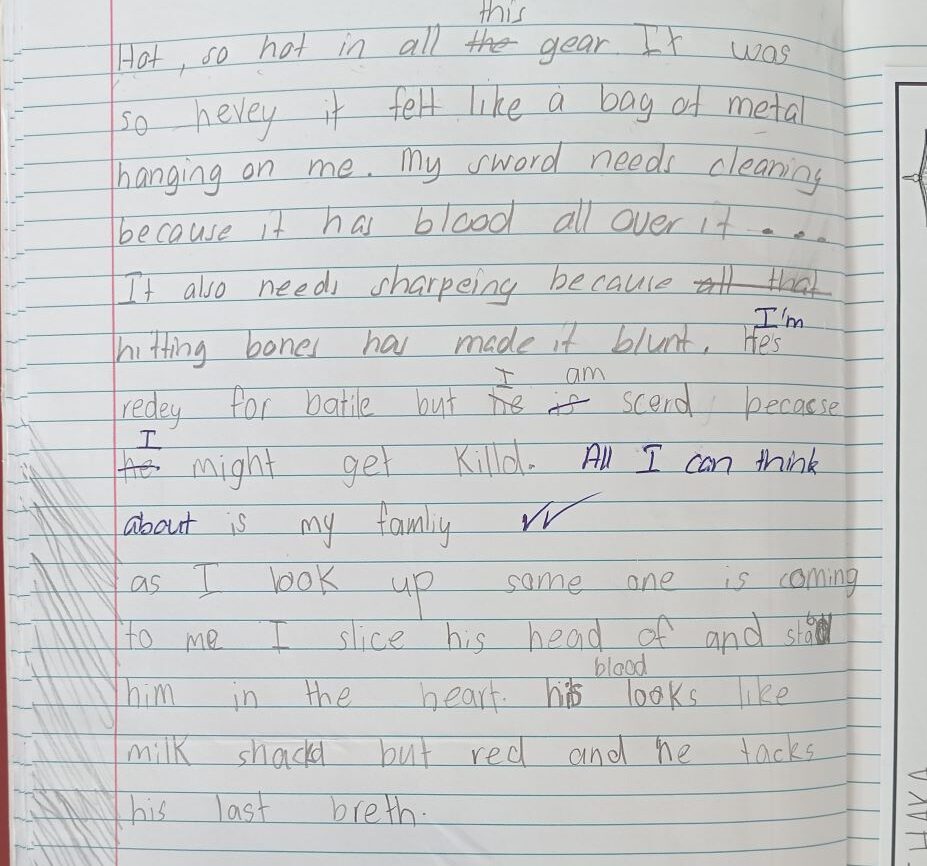 this
Hot, so hot in all the gear. It was
so hevey it felt like a bag of metal
hanging on me. My sword needs cleaning
because it has blood all over it....
It also needs sharpeing because all that
hitting bones has made it blunt. He's
I'm
redey for batile but he is scerd becacse
I am
he might get killd. All I can think
I
about is my famliy
as I look up some one is coming
to me I slice his head of and stab
him in the heart. his looks like
blood
milk shackd but red and he tacks
his last breth.